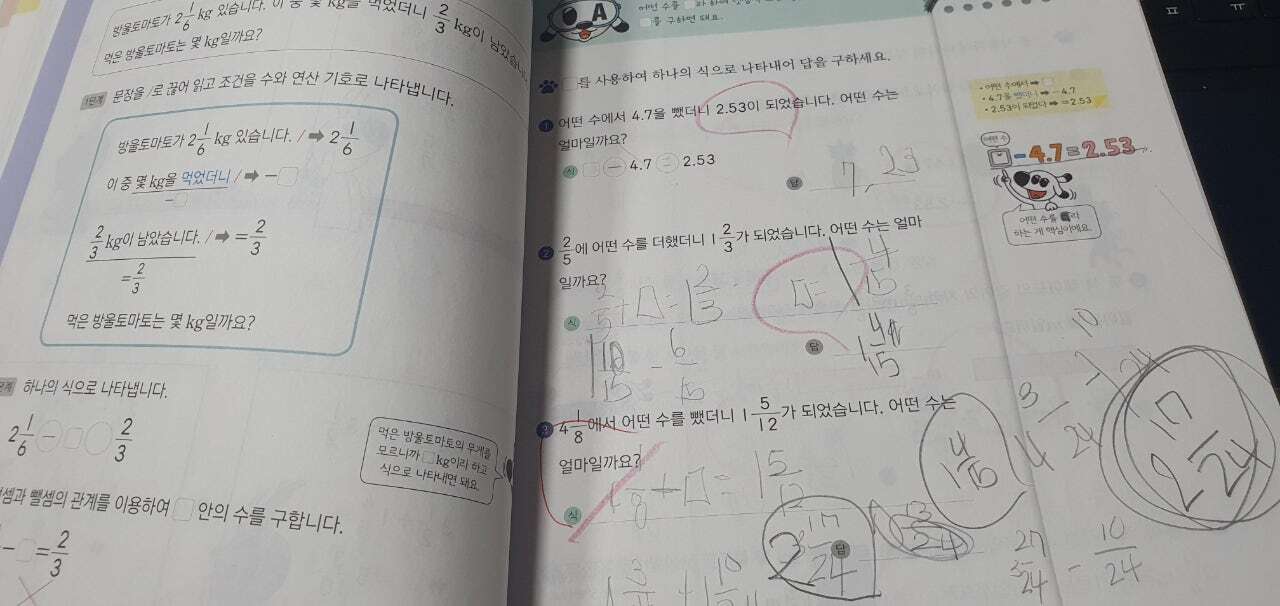 방울토마토가 2 1/6 kg 있습니다. 이 중 몇 kg을 먹었더니 2/3 kg이 남았습니
먹은 방울토마토는 몇 kg일까요?
1단계 문장을 /로 끊어 읽고 조건을 수와 연산 기호로 나타냅니다.
방울토마토가 2 1/6 kg 있습니다. / ➡ 2 1/6
이 중 몇 kg을 먹었더니 / ➡ -□
-□
2/3 kg이 남았습니다. / ➡ = 2/3
= 2/3
먹은 방울토마토는 몇 kg일까요?
단계 하나의 식으로 나타냅니다.
2 1/6 ○- □ ○ 2/3
먹은 방울토마토의 무게를
모르니까 □ kg이라 하고
식으로 나타내면 돼요.
셈과 뺄셈의 관계를 이용하여 □ 안의 수를 구합니다.
-□= 2/3
A
어떤 수를 □라 하여
□를 구하면 돼요.
□를 사용하여 하나의 식으로 나타내어 답을 구하세요.
1 어떤 수에서 4.7을 뺐더니 2.53이 되었습니다. 어떤 수는
얼마일까요?
식 □ - 4.7 = 2.53
답 7.23
2 2/5에 어떤 수를 더했더니 1 2/3가 되었습니다. 어떤 수는 얼마
일까요?
식 2/5+□=1 2/3 □=1 4/15
1 10/15 - 6/15
답 1 4/15
3 4 1/8에서 어떤 수를 뺐더니 1 5/12가 되었습니다. 어떤 수는
얼마일까요?
식 □=1 5/12
답 2 17/24
13/24
1 4/15
2 17/24
3 27/24 - 10/24
4 3/24
• 어떤 수에서 ➡ □
• 4.7을 뺐더니 ➡ -4.7
• 2.53이 되었다 ➡ =2.53
어떤 수
□-4.7=2.53
어떤 수를 □라
하는 게 핵심이에요.
ㅍ
ㅠ